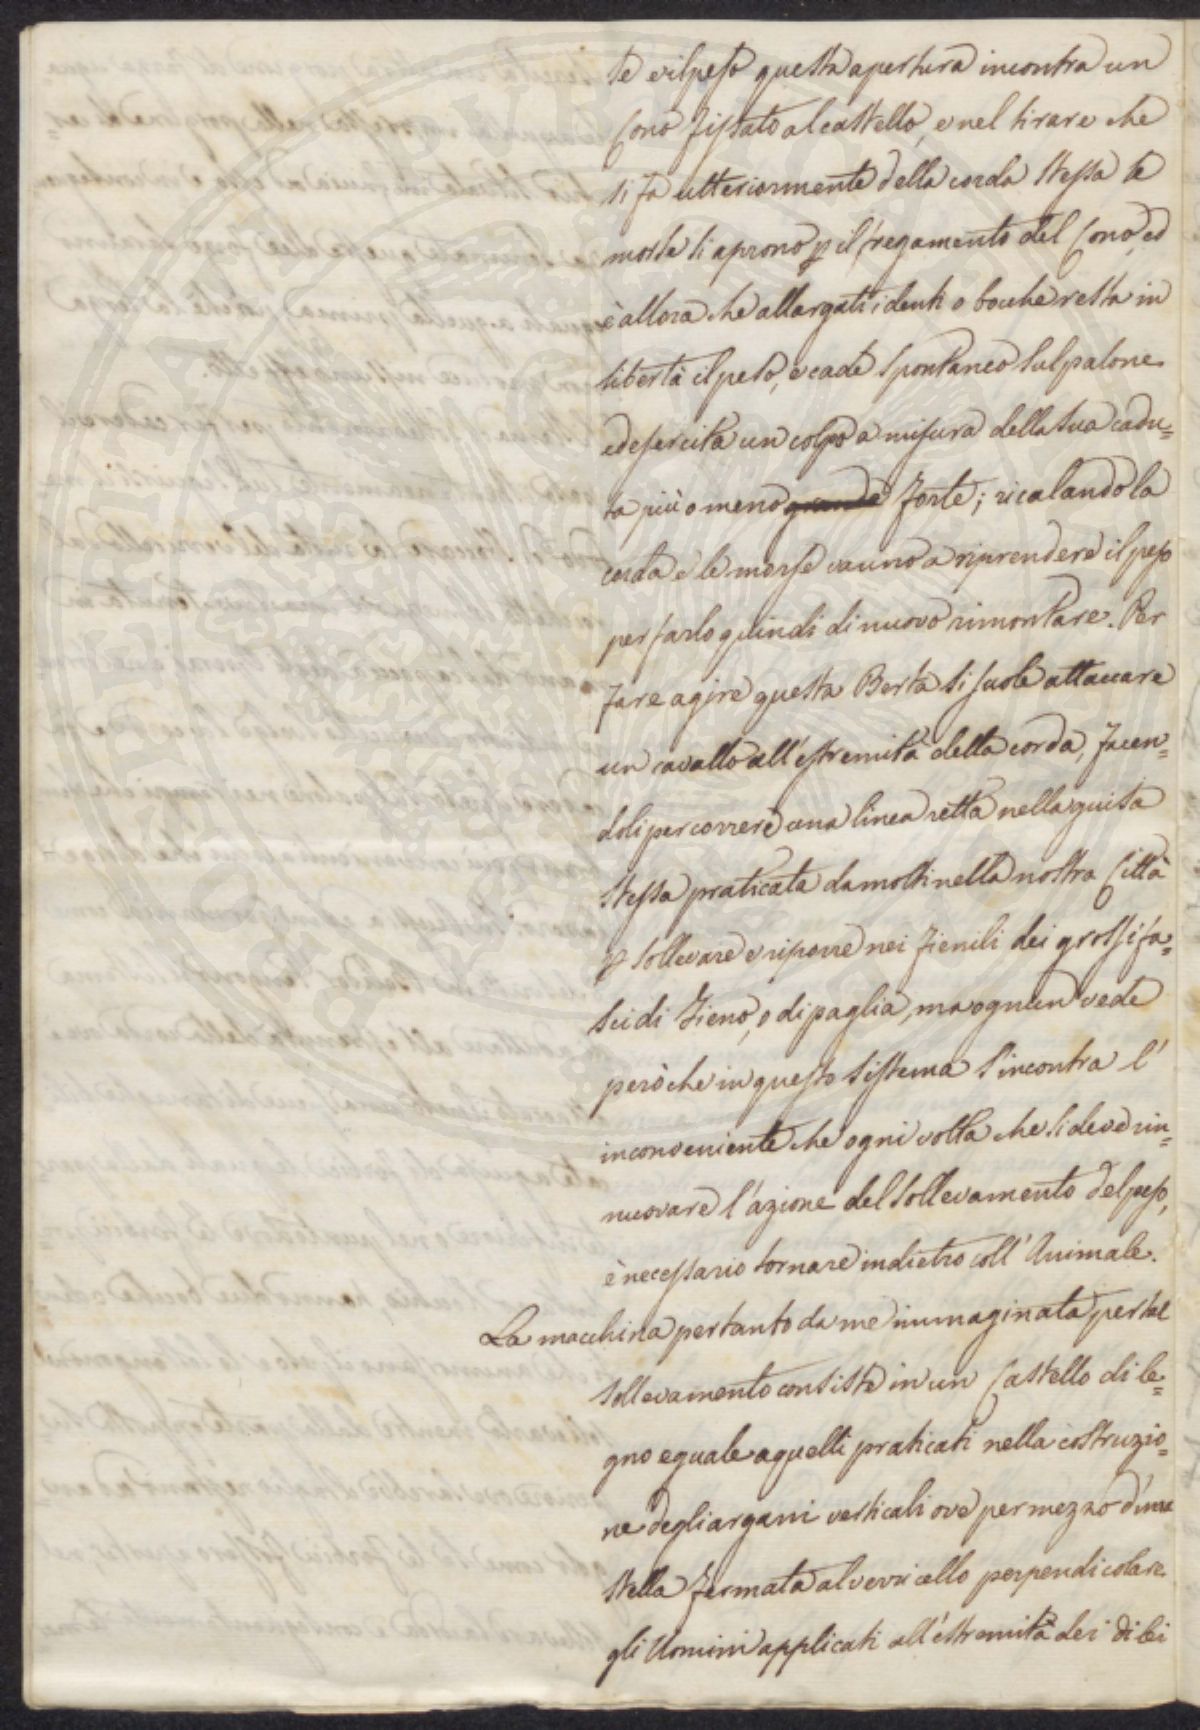 te e il peso questa apertura incontra un
Cono fissato al castello, e nel tirare che
si fa ulteriormente della corda stessa le
morse si aprono p il fregamento del Cono, ed
è allora che allargati i denti o bocche resta in
libertà il peso, e cade spontaneo sul palone
ed esercita un colpo a misura della sua cadu=
ta più o meno grande forte; ricalando la
corda e le morse vanno a riprendere il peso
per farlo quindi di nuovo rimontare. Per
fare agire questa Berta si suole attaccare
un cavallo all'estremità della corda, facen=
doli percorrere una linea retta nella guisa
stessa praticata da molti nella nostra Città
p sollevare e riporre nei fienili dei grossi fa=
sci di fieno, o di paglia, ma ognun vede
però che in questo sistema s'incontra l'
inconveniente che ogni volta che si deve rin=
nuovare l'azione del sollevamento del peso,
è necessario tornare indietro coll'Animale.
La macchina pertanto da me immaginata per tal
sollevamento consiste in un Castello di le=
gno eguale a quelli praticati nella costruzio=
ne degli argani verticali ove per mezzo d'una
stella fermata al verricello perpendicolare
gli Uomini applicati all'estremità dei di lei